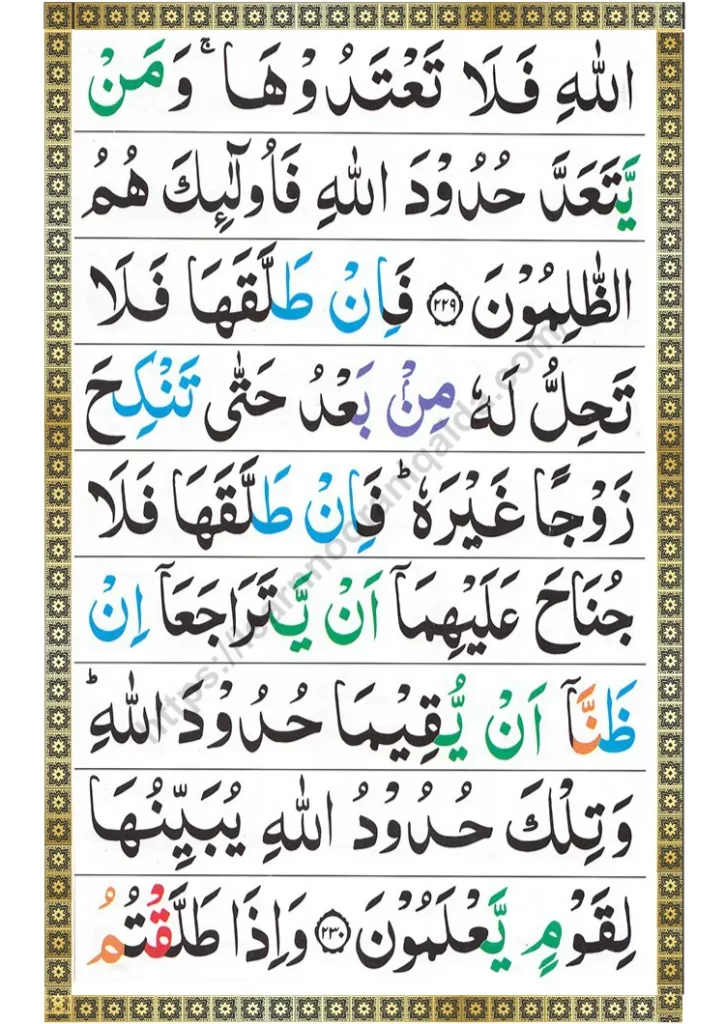 اللّٰهِ فَلَا تَعْتَدُوْهَا ۚ وَمَنْ
يَّتَعَدَّ حُدُوْدَ اللّٰهِ فَاُولٰٓئِكَ هُمُ
الظّٰلِمُوْنَ ﴿٢٢٩﴾ فَاِنْ طَلَّقَهَا فَلَا
تَحِلُّ لَهٗ مِنْۢ بَعْدُ حَتّٰى تَنْكِحَ
زَوْجًا غَيْرَهٗ ؕ فَاِنْ طَلَّقَهَا فَلَا
جُنَاحَ عَلَيْهِمَاۤ اَنْ يَّتَرَاجَعَاۤ اِنْ
ظَنَّاۤ اَنْ يُّقِيْمَا حُدُوْدَ اللّٰهِ ؕ
وَتِلْكَ حُدُوْدُ اللّٰهِ يُبَيِّنُهَا
لِقَوْمٍ يَّعْلَمُوْنَ ﴿٢٣٠﴾ وَاِذَا طَلَّقْتُمُ